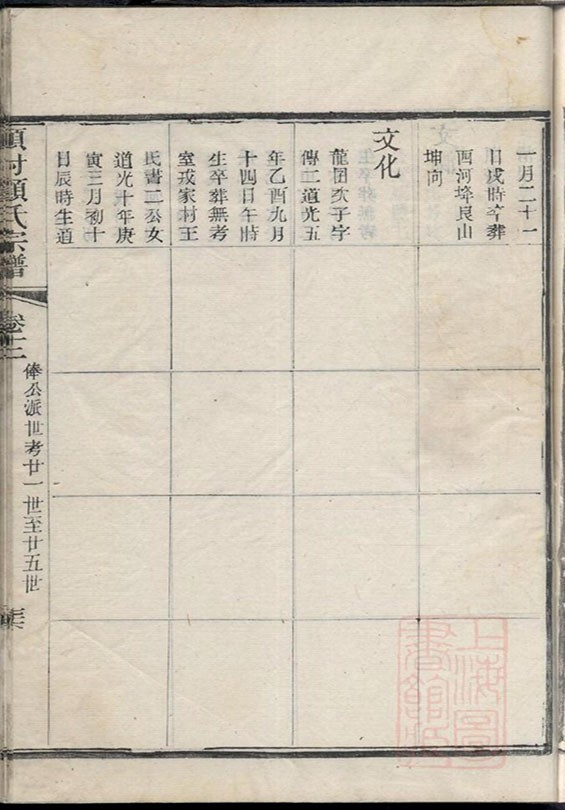 一月二十一
日戌時卒葬
西河塝艮山
坤向
文化
龍圖次子字
傳二道光五
年乙酉九月
十四日午時
生卒葬無考
室戎家村王
氏書二公女
道光十年庚
寅三月初十
日辰時生道
村顧氏宗譜
卷十二
俸公派世考廿一世至廿五世
上海圖書館藏